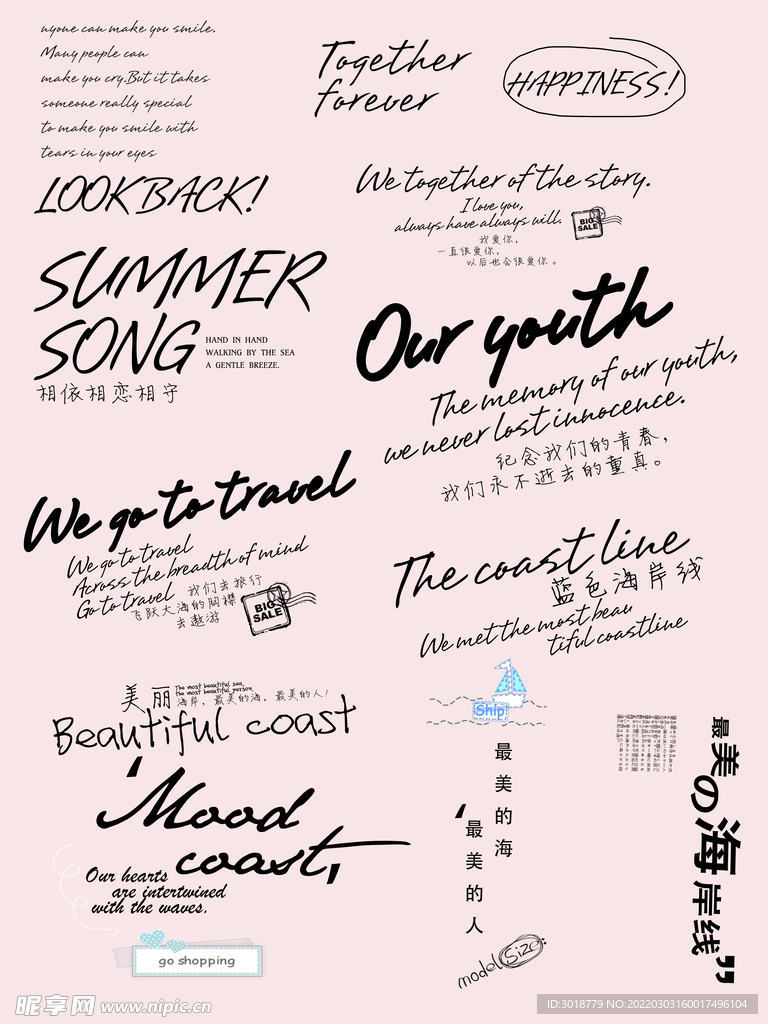 nyone can make you smile.
Many people can
make you cry.But it takes
someone really special
to make you smile with
tears in your eyes
LOOK BACK!
Together
forever
HAPPINESS!
We together of the story.
I love you,
always have always will.
BIG
SALE
我爱你，
一直很爱你，
以后也会很爱你。
SUMMER
SONG
HAND IN HAND
WALKING BY THE SEA
A GENTLE BREEZE.
相依相恋相守
Our youth
The memory of our youth,
we never lost innocence.
纪念我们的青春，
我们永不逝去的童真。
We go to travel
We go to travel
Across the breadth of mind
Go to travel
我们去旅行
飞跃大海的胸襟
去遨游
BIG
SALE
The coast line
蓝色海岸线
We met the most beau
tiful coastline
美丽
The most beautiful sea,
the most beautiful person.
海岸，最美的海，最美的人！
Beautiful coast
Ship!
最美的海
‘最美的人
‘Mood
coast,
Our hearts
are intertwined
with the waves.
go shopping
model Size:
最美の海岸线”
昵享网 www.nipic.cn
ID:3018779 NO:20220303160017496104